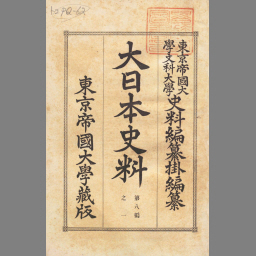 東京帝國大學文科大學史料編纂掛編纂
大日本史料
第八編之一
東京帝國大學藏版